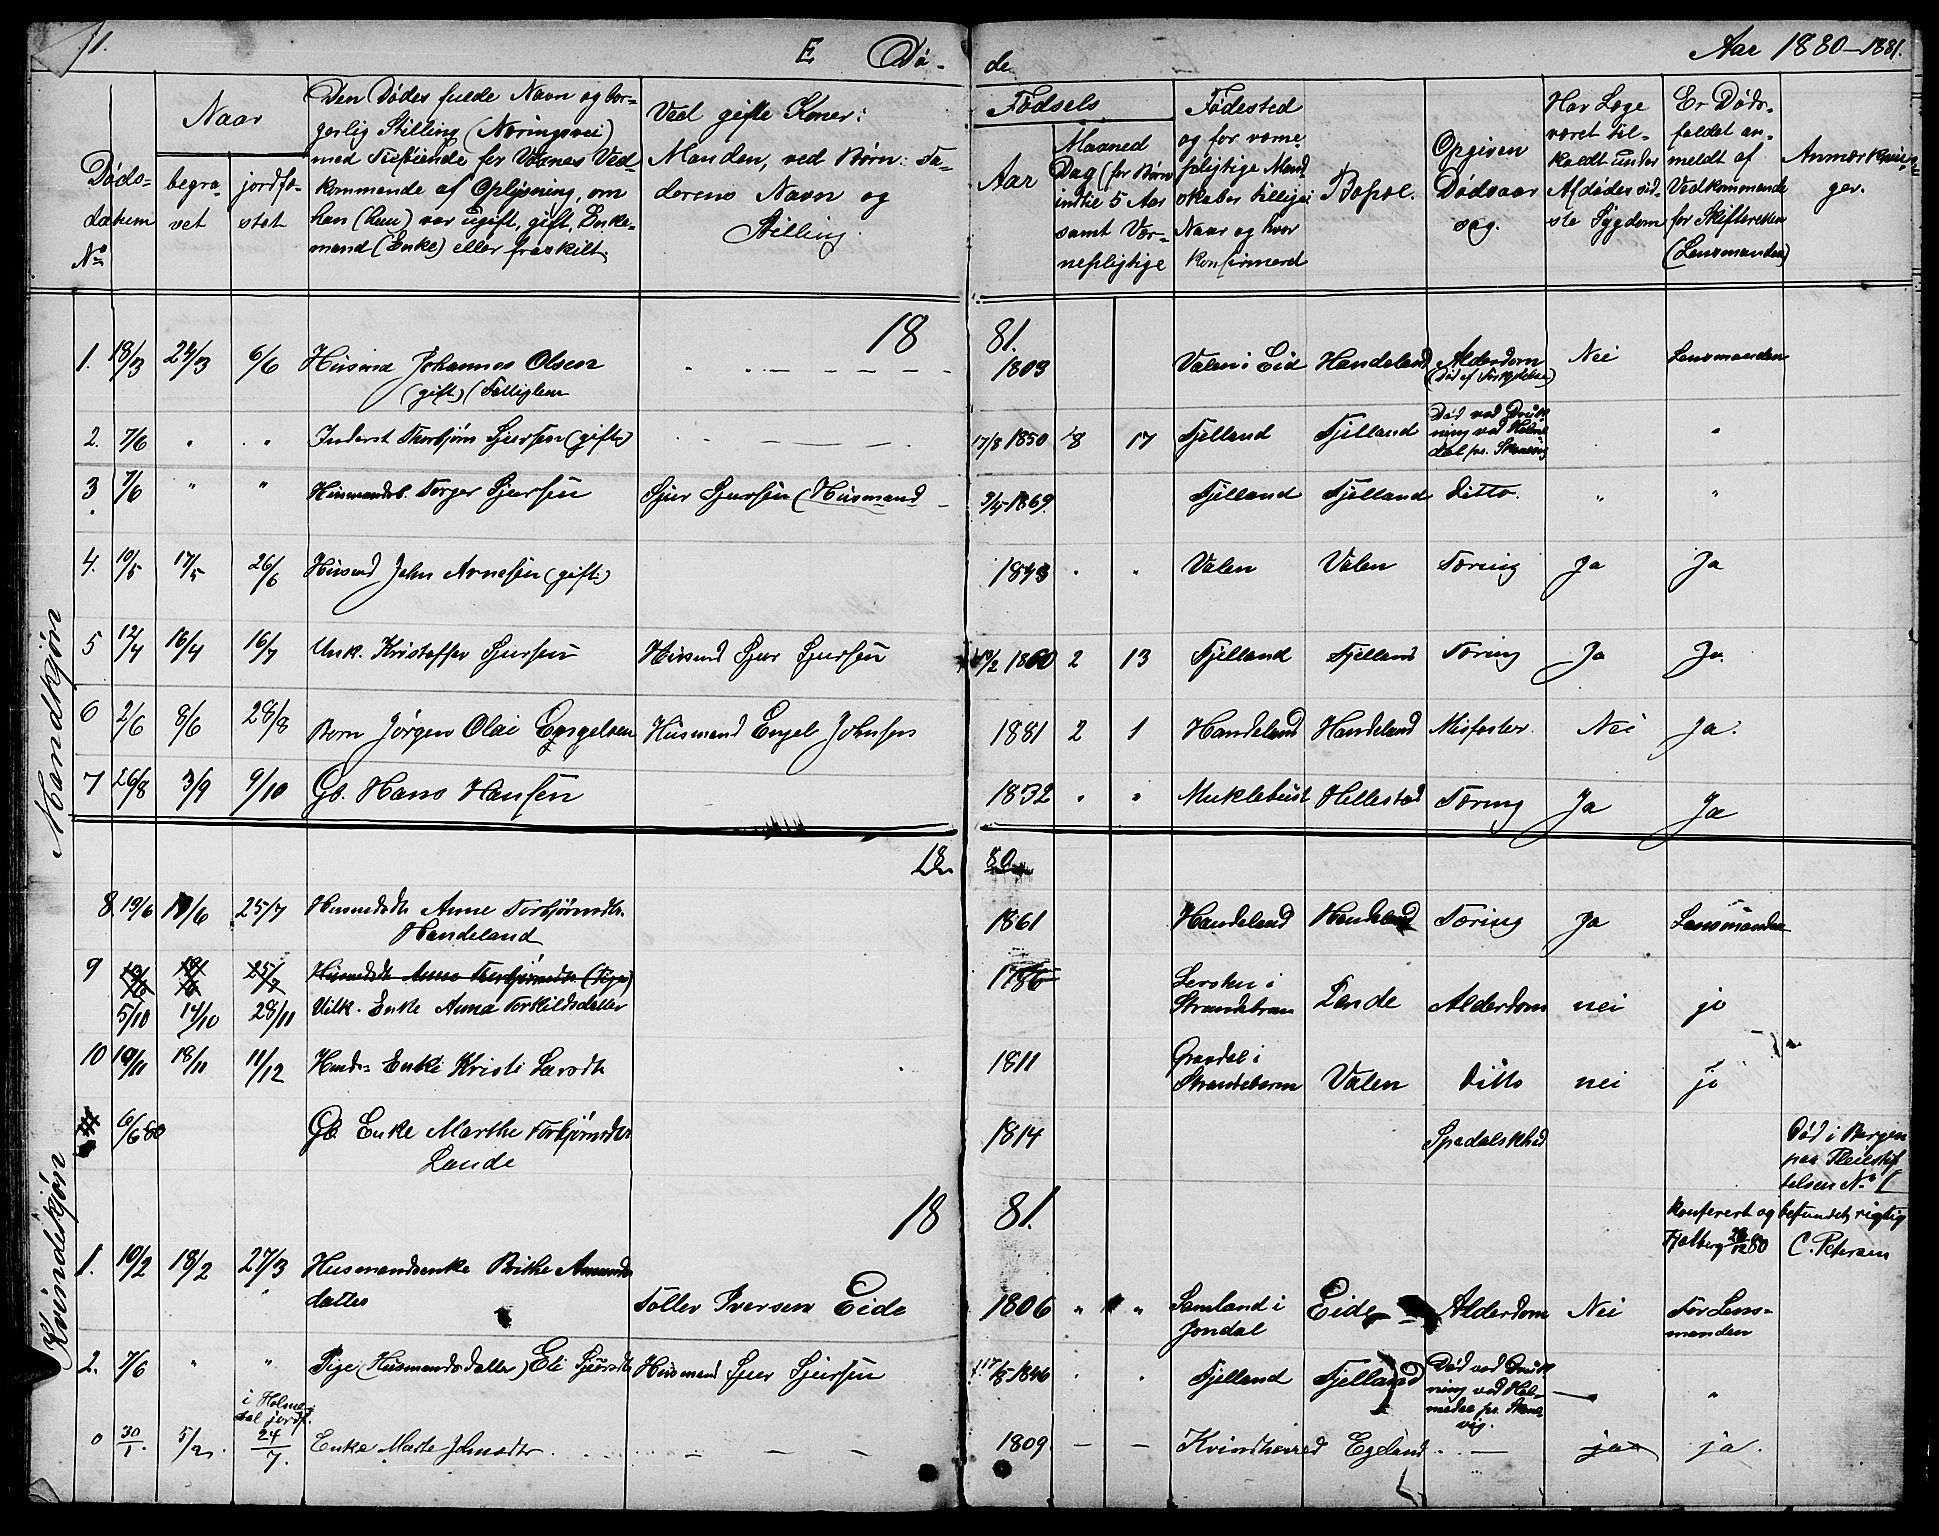 11. E Dö- de Aar 1880-1881.
Dödsdatum No
Naar begravet jordfæstet
Den Dödes fulde Navn og borgerlig Stilling (Næringsvei) med Tilföiende for Voxnes Vedkommende af Oplysning, om han (hun) var ugift, gift, Enkemand (Enke) eller fraskilt.
Ved gifte Koner: Manden, ved Börn: Faderens Navn og Stilling.
Födsels Aar Maaned Dag (for Börn indtil 5 Aar samt Værnepligtige
Födested og for værnepligtige Mandskaber tillige: Naar og hvor konfirmerd
Bopæl.
Opgiven Dödsaarsag.
Har Læge været tilkaldt under Afdödes sidste Sygdom
Er Dödsfaldet anmeldt af Vedkommende for Skifteretten (Lensmanden)
Anmærkninger.
Mandkjön
18 81.
1. 18/3 24/3 6/6 Husmd Johannes Olsen (gift) (Fattiglem " " — — — — 1803 Valen i Eid Handeland Alderdom Nei Lensmanden
2. 7/6 " " Inderst Thorbjörn Sjursen (gift) " " — — — 17/8 1850 8 17 Fjelland Fjelland Död ved Drukning ved Holmedal pr. Skonevig "
3. 7/6 " " Husmandss. Torger Sjursen Sjur Sjursen (Husmand 3/4 1869. Fjelland Fjelland Ditto. " "
4. 10/5 17/5 26/6 Husmd John Arnesen (gift) 1843 " " Valen Valen Tæring Ja Ja
5 12/4 16/4 16/7 Unk. Kristoffer Sjursen Husmd Sjur Sjursen 13/2 1860 2 13 Fjelland Fjelland Tæring Ja Ja
6 2/6 8/6 28/8 Barn Jörgen Olai Engelsen Husmand Engel Johnsen 1881 2 1 Handeland Handeland Misfoster. Nei Ja.
7 26/8 3/9 9/10 Gb. Hans Hansen 1832 " " Muklebust Hillestad Tæring Ja Ja
18 80
8 10/6 19/6 25/7 Husmdsdtr Anne Torbjörnsdtr. Handeland 1861 Handeland Handeland Tæring Ja Lensmanden
9 25/7 Husmdsdtr Anna Thorbjörnsdtr (Pige)
5/10 14/10 28/11 Vilk. Enke Anna Torkildsdatter 1786 i Strandebarm Lande Alderdom nei jo
10 10/11 18/11 11/12 Enke Kristi Larsdtr 1811 i Strandebarm Valen Ditto nei jo
6/6 80 Gb Enke Marthe Torbjörnsdtr Lande 1814 Spedalskhed Död i Bergen paa Pleiestiftelsen No 1
Kvindekjön
18 81.
Konferert og befundet rigtig
Fjelberg 80 C. Petersen
1. 10/2 18/2 27/3 Husmandsenke Brithe Amundsdatter Tollev Iversen Eide 1806 " " Samland i Jondal Eide Alderdom Nei For Lensmanden
2. 7/6 " " Pige (Husmandsdatter) Eli Sjursdtr Husmand Sjur Sjursen 17/5 1846 " " Fjelland Fjelland Död ved Drukning ved Holmedal pr. Skonevig. — "
30/1. 5/2. i Holmedal jordf. 24/7. Enke Marte Johnsdtr — — — 1809. — — Kvindherred Egeland. — ja ja.